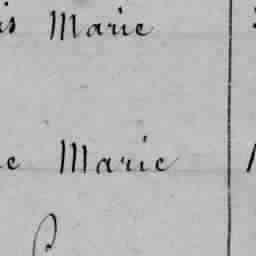 is Marie
e Marie